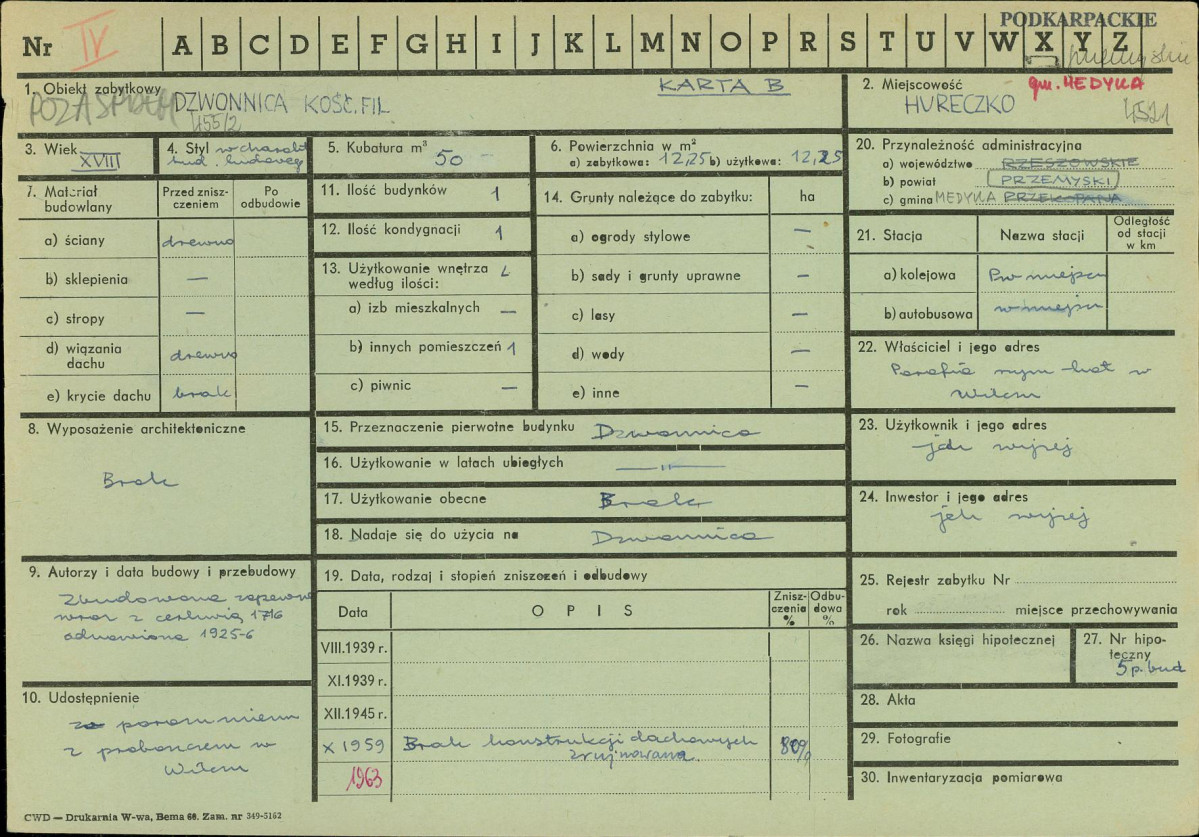 PODKARPACKIE
Nr IV A B C D E F G H I J K L M N O P R S T U V W X Y Z
1. Obiekt zabytkowy KARTA B
POZA SPISEM DZWONNICA KOŚĆ. FIL
455/2
2. Miejscowość gm. MEDYKA
HURECZKO 4521
3. Wiek XVIII
4. Styl w charakt
bud. ludoweg
5. Kubatura m³ 50
6. Powierzchnia w m²
a) zabytkowa: 12,25 b) użytkowa: 12,25
20. Przynależność administracyjna
a) województwo RZESZOWSKIE
b) powiat PRZEMYSKI
c) gmina MEDYKA PRZEKOPANA
7. Materiał budowlany
Przed znisz-
czeniem
Po
odbudowie
a) ściany drewno
b) sklepienia —
c) stropy —
d) wiązania
dachu drewno
e) krycie dachu brak
11. Ilość budynków 1
12. Ilość kondygnacji 1
13. Użytkowanie wnętrza
według ilości:
a) izb mieszkalnych —
b) innych pomieszczeń 1
c) piwnic —
14. Grunty należące do zabytku: ha
a) ogrody stylowe —
b) sady i grunty uprawne —
c) lasy —
d) wody —
e) inne —
21. Stacja Nazwa stacji
Odległość
od stacji
w km
a) kolejowa w miejscu
b) autobusowa w miejscu
22. Właściciel i jego adres
Parafia rzym kat w
23. Użytkownik i jego adres
jak wyżej
24. Inwestor i jego adres
jak wyżej
8. Wyposażenie architektoniczne
Brak
15. Przeznaczenie pierwotne budynku Dzwonnica
16. Użytkowanie w latach ubiegłych — " —
17. Użytkowanie obecne Brak
18. Nadaje się do użycia na Dzwonnica
9. Autorzy i data budowy i przebudowy
Zbudowana zapewne
wraz z cerkwią 1716
odnowiona 1925-6
10. Udostępnienie
za porozumieniem
z proboszczem w
19. Data, rodzaj i stopień zniszczeń i odbudowy
Data OPIS
Znisz-
czenia
%
Odbu-
dowa
%
VIII.1939 r.
XI.1939 r.
XII.1945 r.
X 1959 Brak konstrukcji dachowych
zrujnowana. 80%
1963
25. Rejestr zabytku Nr
rok miejsce przechowywania
26. Nazwa księgi hipotecznej
27. Nr hipo-
teczny
5 p. bud
28. Akta
29. Fotografie
30. Inwentaryzacja pomiarowa
CWD — Drukarnia W-wa, Bema 60. Zam. nr 349-5162